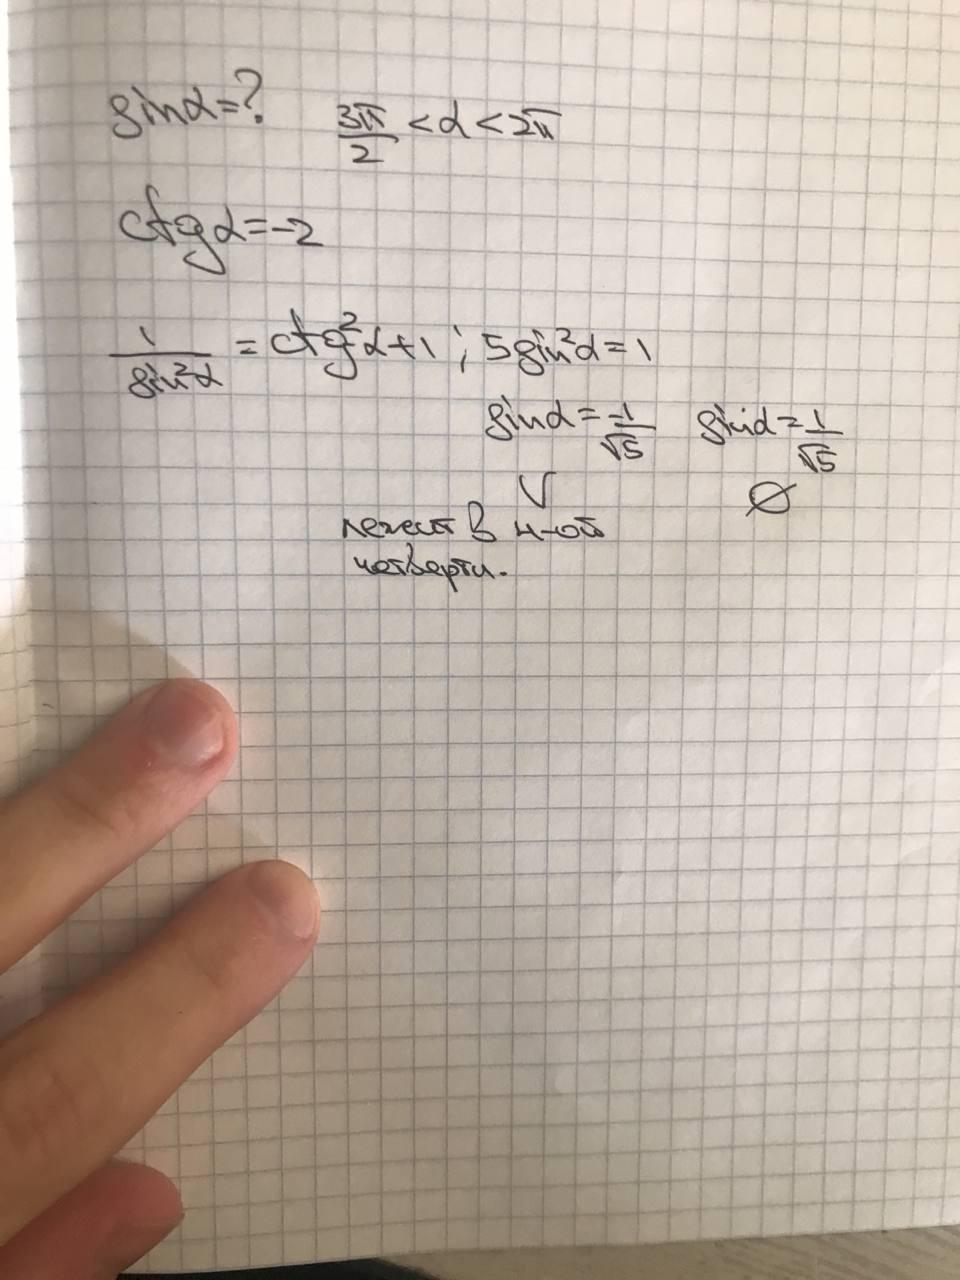 sinα=? 3π/2 <α<2π
ctgα=-2
1/sin²α = ctg²α+1 ; 5sin²α=1
sinα=-1/√5 sinα=1/√5
∨ ∅
лежит в 4-ой
четверти.